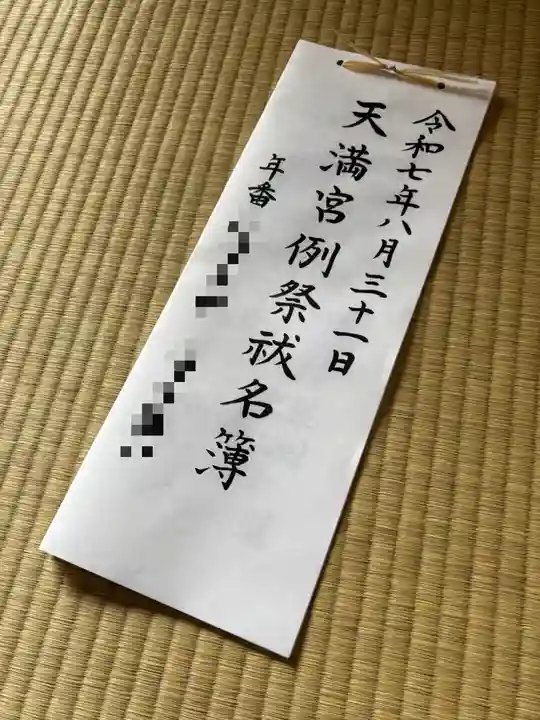 令和七年八月三十一日
天満宮例祭祓名簿
年番